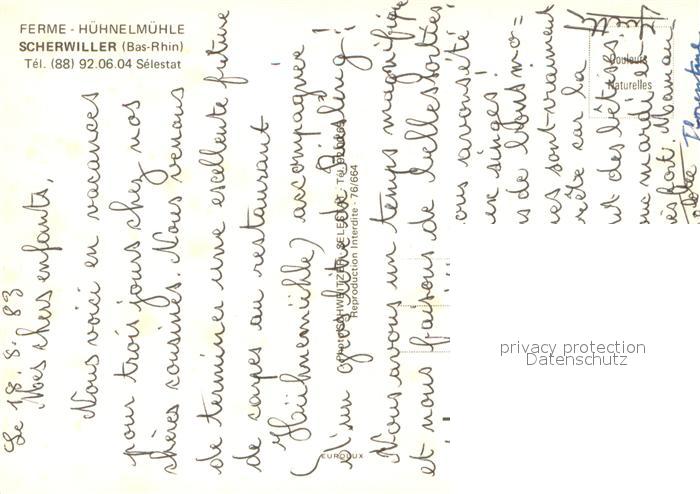 FERME - HÜHNELMÜHLE
SCHERWILLER (Bas-Rhin)
Tél. (88) 92.06.04 Sélestat
Le 18.8.83
Mes chers enfants,
Nous voici en vacances
pour trois jours chez nos
chères cousines. Nous venons
de terminer une excellente friture
de carpes au restaurant
Hühnemühle) accompagnée
d'un gros litre de Riesling!
Nous avons un temps magnifique
et nous faisons de belles sorties.
ous avons été
en singes
s de
es sont vraiment
rête sur la
nt des bêtises.
mardi et
fort. Maman
Photo SCHWEITZER - SELESTAT - Tél.
Reproduction Interdite - 76/664
EUROLUX
Couleurs
Naturelles
privacy protection
Datenschutz